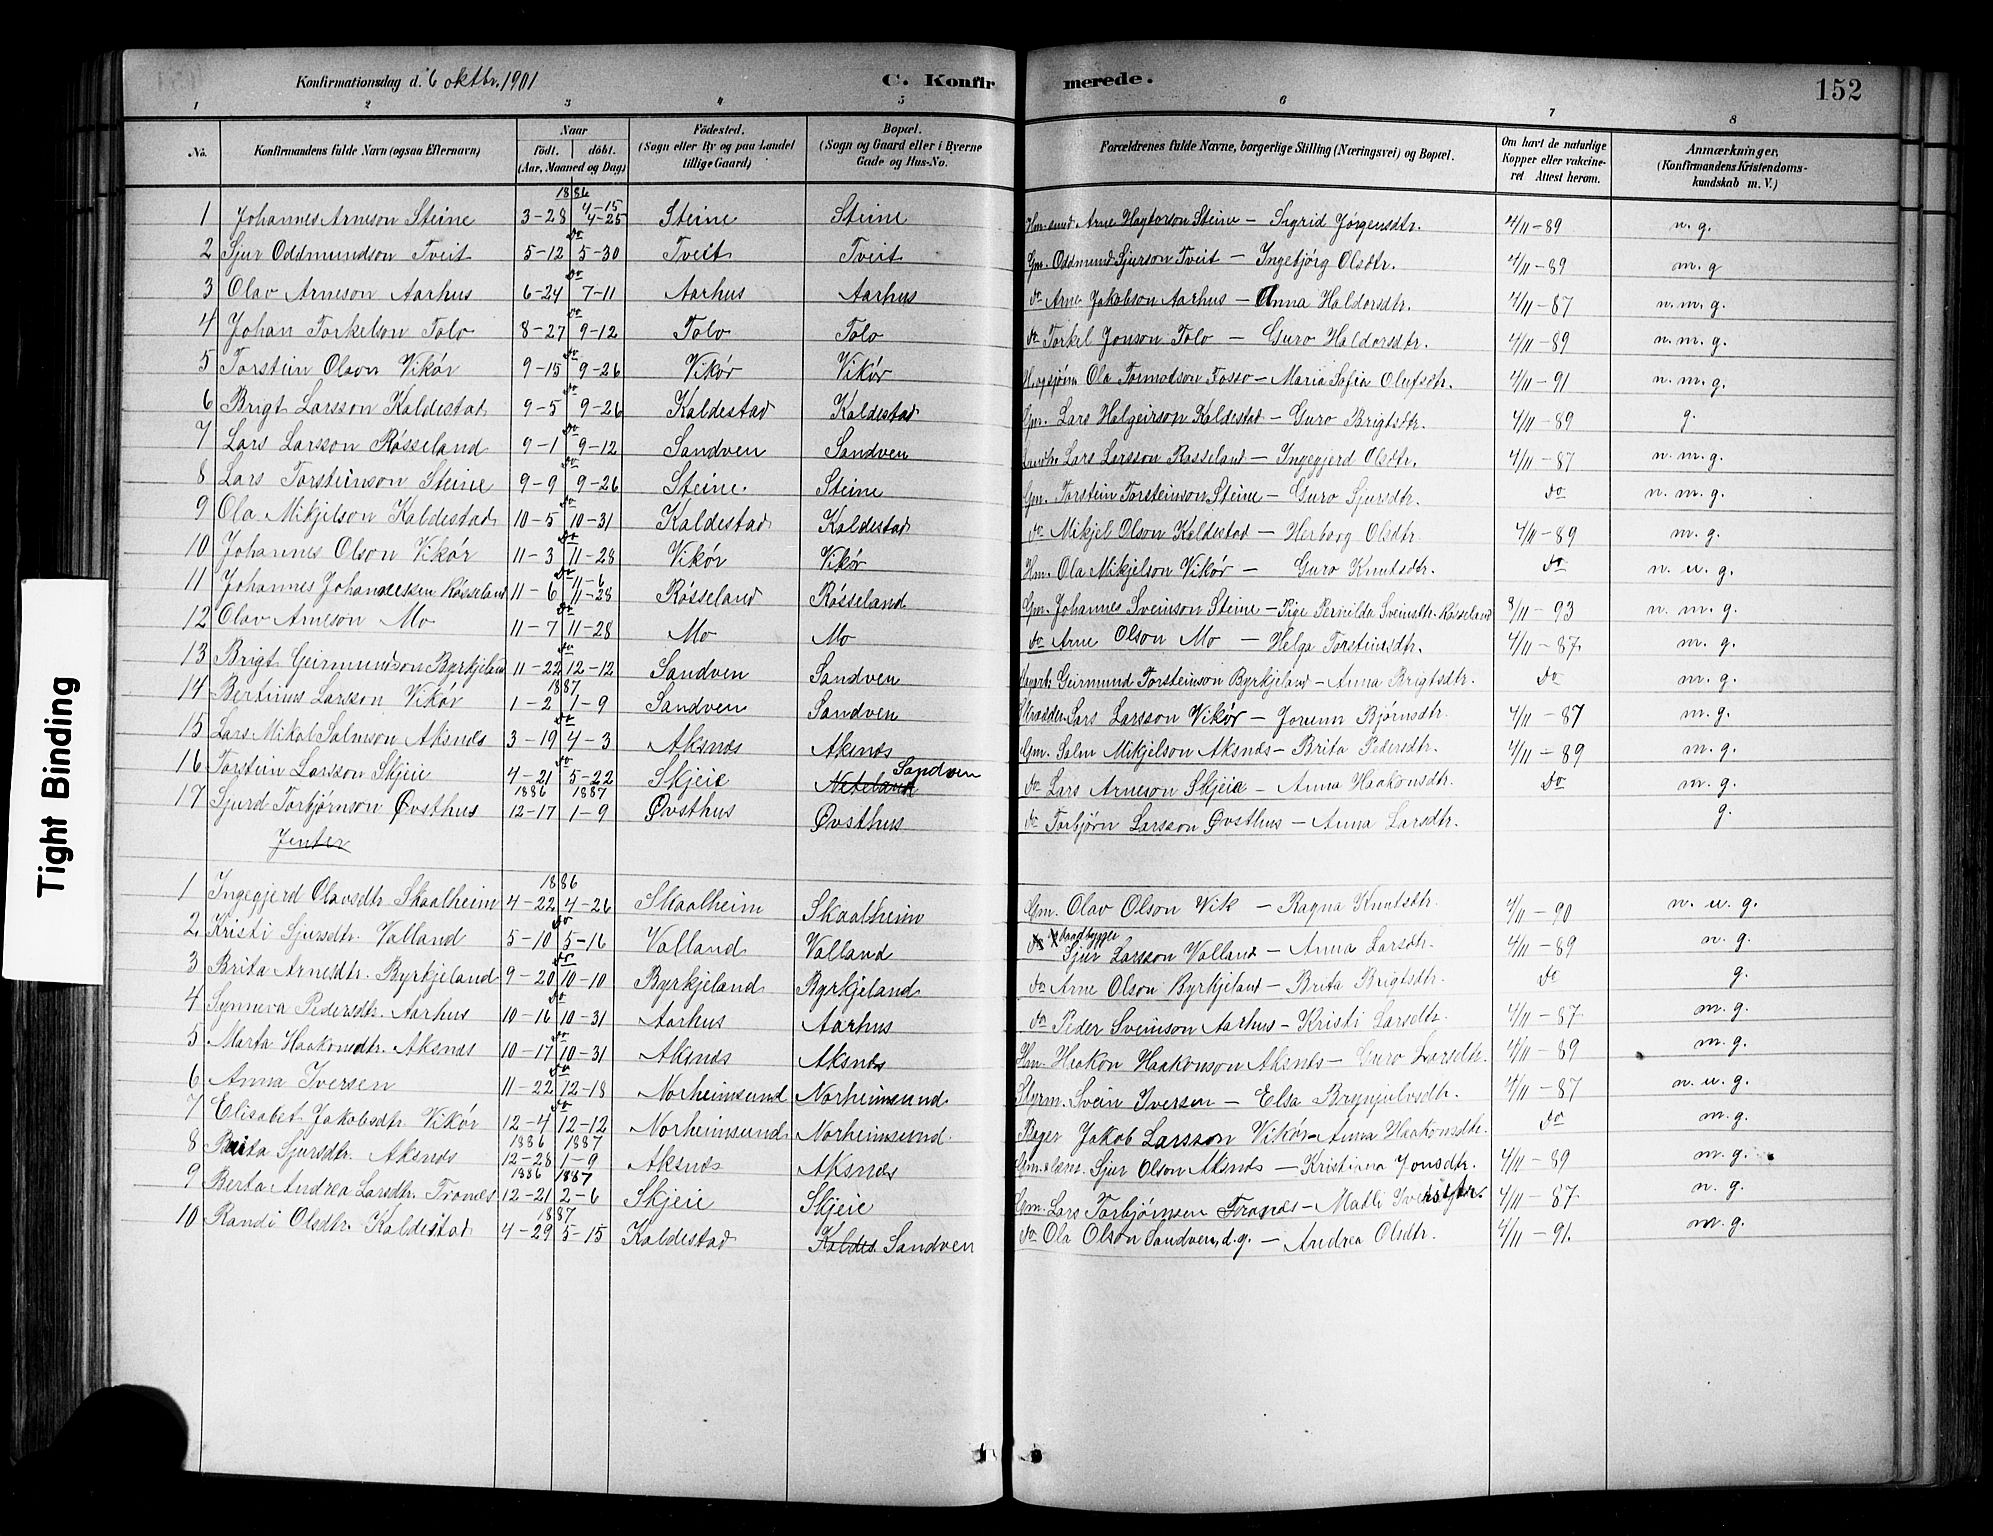 Konfirmationsdag d. 6 oktbr. 1901 C. Konfirmerede. 152
1 2 3 4 5 6 7 8
No. Konfirmandens fulde Navn (ogsaa Efternavn) Naar født. døbt. (Aar, Maaned og Dag) Fødested. (Sogn eller By og paa Landet tillige Gaard) Bopæl. (Sogn og Gaard eller i Byerne Gade og Hus-No. Forældrenes fulde Navne, borgerlige Stilling (Næringsvei) og Bopæl. Om havt de naturlige Kopper eller vakcineret Attest herom. Anmærkninger. (Konfirmandens Kristendomskundskab m. V.)
1886
1 Johannes Arneson Steine 3-28 4-15 4-25 Steine Steine Arne Steine - Sigrid Jørgensdtr. 4/11-89 n. g.
2 Sjur Oddmundson Tveit 5-12 do 5-30 Tveit Tveit Gm. Oddmund Sjurson Tveit - Ingebjørg Olsdtr. 4/11-89 m. g
3 Olav Arneson Aarhus 6-24 do 7-11 Aarhus Aarhus do Arne Jakobson Aarhus - Anna Haldorsdtr. 4/11-87 n. m. g.
4 Johan Torkelson Tolo 8-27 do 9-12 Tolo Tolo do Torkel Jonson Tolo - Guro Haldorsdtr. 4/11-89 n. m. g.
5 Torstein Olavn Vikør 9-15 do 9-26 Vikør Vikør Ola Tormodson Fosso - Maria Sofia Olufsdtr. 4/11-91 n. m. g.
6 Brigt Larsson Kaldestad 9-5 do 9-26 Kaldestad Kaldestad Gm. Lars Helgeirson Kaldestad - Guro Brigtsdtr. 4/11-89 g.
7 Lars Larsson Røsseland 9-1 do 9-12 Sandven Sandven Lars Larsson Røsseland - Ingegjerd Olsdtr. 4/11-87 n. m. g.
8 Lars Torsteinson Steine 9-9 do 9-26 Steine Steine Gm. Torstein Torsteinson Steine - Guro Sjursdtr. do n. m. g.
9 Ola Mikjelson Kaldestad 10-5 do 10-31 Kaldestad Kaldestad do Mikjel Olson Kaldestad - Herborg Olsdtr 4/11-89 m. g.
10 Johannes Olson Vikør 11-3 do 11-28 Vikør Vikør Hm. Ola Mikjelson Vikør - Guro Knutsdtr. do n. u. g.
11 Johannes Johannessen Røsseland 11-6 do 11-6 11-28 Røsseland Røsseland Gm. Johannes Sveinson Steine - Pige Pernilda Sveinsdtr. Røsseland 8/11-93 n. m. g.
12 Olav Arneson Mo 11-7 do 11-28 Mo Mo do Arne Olson Mo - Helga Torsteinsdtr. 4/11-87. m. g.
13 Brigt Geirmundson Byrkjeland 11-22 do 12-12 Sandven Sandven Geirmund Torsteinson Byrkjeland - Anna Brigtsdtr. do m. g.
1887
14 Bertinus Larsson Vikør 1-2 1-9 Sandven Sandven Lars Larsson Vikør - Jorunn Bjørnsdtr. 4/11-87 m. g.
15 Lars Mikal Salmson Aksnes 3-19 do 4-3 Aksnæs Aksnæs Gm. Salm Mikjelson Aksnæs - Brita Pedersdtr. 4/11-89 m. g.
16 Torstein Larsson Skjeie 4-21 do 5-22 Skjeie Neteland Sandven do Lars Arneson Skjeie - Anna Haakonsdtr. do m. g.
1886 1887
17 Sjurd Torbjørnson Øvsthus 12-17 1-9 Øvsthus Øvsthus do Torbjørn Larsson Øvsthus - Anna Larsdtr. g.
Jenter
1886
1 Ingegjerd Olavsdtr. Skaalheim 4-22 4-26 Skaalheim Skaalheim Gm. Olav Olson Vik - Ragna Knutsdtr. 4/11-90 n. u. g.
2. Kristi Sjursdtr. Valland 5-10 do 5-16 Valland Valland do Sjur Larsson Valland - Anna Larsdtr. 4/11-89 n. g.
3 Brita Arnesdtr. Byrkjeland 9-20 do 10-10 Byrkjeland Byrkjeland do Arne Olson Byrkjeland - Brita Brigtsdtr. do g.
4 Synneva Pedersdtr. Aarhus 10-16 do 10-31 Aarhus Aarhus do Peder Sveinson Aarhus - Kristi Larsdtr. 4/11-87. m. g.
5 Marta Haakonsdtr. Aksnæs 10-17 do 10-31 Aksnæs Aksnæs Hm. Haakon Haakonson Aksnæs - Guro Larsdtr. 4/11-89 m. g.
6 Anna Iversen 11-22 do 12-18 Norheimsund Norheimsund Styrm. Svein Iversen - Elsa Brynjulvsdtr. 4/11-87 n. u. g.
7 Elisabet Jakobsdtr Vikør 12-4 do 12-12 Norheimsund Norheimsund. Bager Jakob Larsson Vikør - Anna Haakonsdtr. do m. g.
1886 1887
8 Brita Sjursdtr. Aksnæs 12-28 1-9 Aksnæs Aksnæs Sjur Olson Aksnæs - Kristiana Jonsdtr. 4/11-89 m. g.
1886 1887
9 Berta Andrea Larsdtr. Tranes 12-21 2-6 Skjeie Skjeie Gm. Lars Torbjørnsen Tranæs - Madli Iversdtr. 4/11-87. n. g.
1887
10 Randi Olsdtr. Kaldestad 4-29 5-15 Kaldestad Kaldes Sandven do Ola Olson Sandven, d.y. - Andrea Olsdtr. 4/11-91. m. g.
Tight Binding